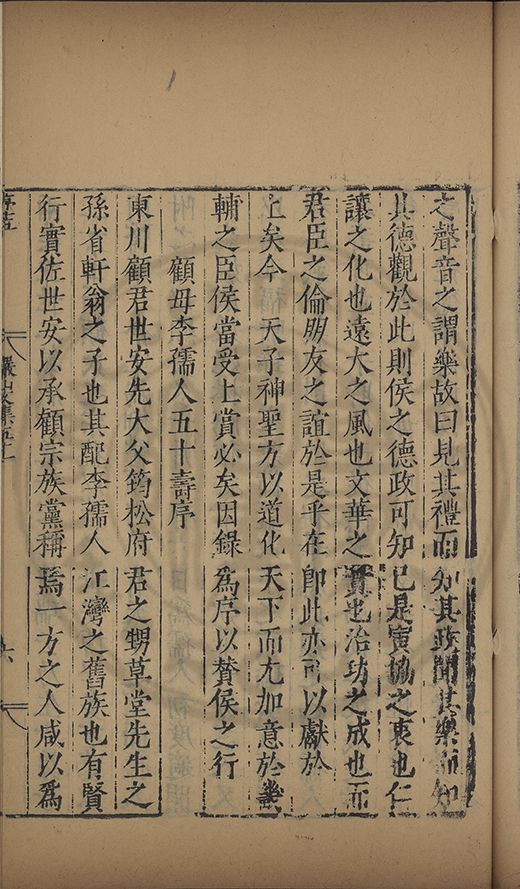 之聲音之謂樂故曰見其禮而知其政聞其樂而知
其德觀於此則侯之德政可知已是寅協之衷也仁
讓之化也遠大之風也文華之實也治功之成也而
君臣之倫朋友之誼於是乎在即此亦可以獻於
上矣今 天子神聖方以道化天下而尤加意於畿
輔之臣侯當受上賞必矣因錄為序以贊侯之行
顧母李孺人五十壽序
東川顧君世安先大父筠松府君之甥草堂先生之
孫省軒翁之子也其配李孺人江灣之舊族也有賢
行實佐世安以承顧宗族黨稱焉一方之人咸以為